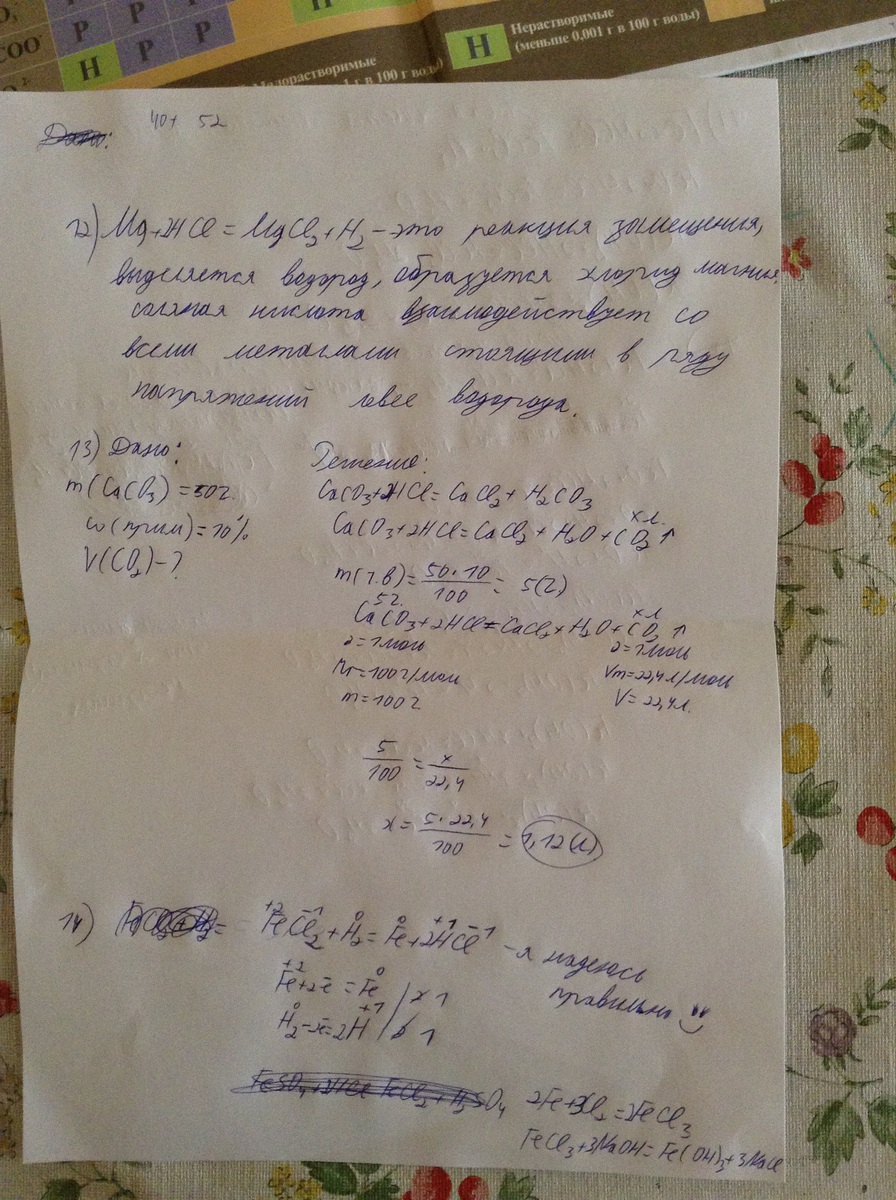 Р Р Н
СОО Р Р Р
Н Р Р
Малорастворимые
1 г в 100 г воды)
Н Нерастворимые
(меньше 0,001 г в 100 г воды)
Дано:
40+ 52
12) Mg+2HCl = MgCl₂+H₂ - это реакция замещения,
выделяется водород, образуется хлорид магния.
соляная кислота взаимодействует со
всеми металлами стоящими в ряду
напряжений левее водорода.
13) Дано:
m(CaCO₃) = 50г.
ω(прим) = 10%
V(CO₂) - ?
Решение:
CaCO₃+2HCl = CaCl₂ + H₂CO₃
x л.
CaCO₃+2HCl = CaCl₂ + H₂O + CO₂↑
m(ч.в) = 50·10/100 = 5(г)
5г. x л
CaCO₃+2HCl = CaCl₂ + H₂O + CO₂↑
ν=1моль ν=1моль
Mr=100г/моль Vm=22,4л/моль
m=100г. V=22,4л.
5/100 = x/22,4
x = 5·22,4/100 = 1,12(л)
14) Fe⁺²Cl₂⁻¹ + H₂⁰ = Fe⁰ + 2H⁺¹Cl⁻¹ - я надеюсь
правильно
Fe⁺²+2e̅ = Fe⁰ | 2 1
H₂⁰-2e̅=2H⁺¹ | 2 1
FeSO₄+2HCl FeCl₂+H₂SO₄
2Fe+3Cl₂=2FeCl₃
FeCl₃+3NaOH=Fe(OH)₃+3NaCl